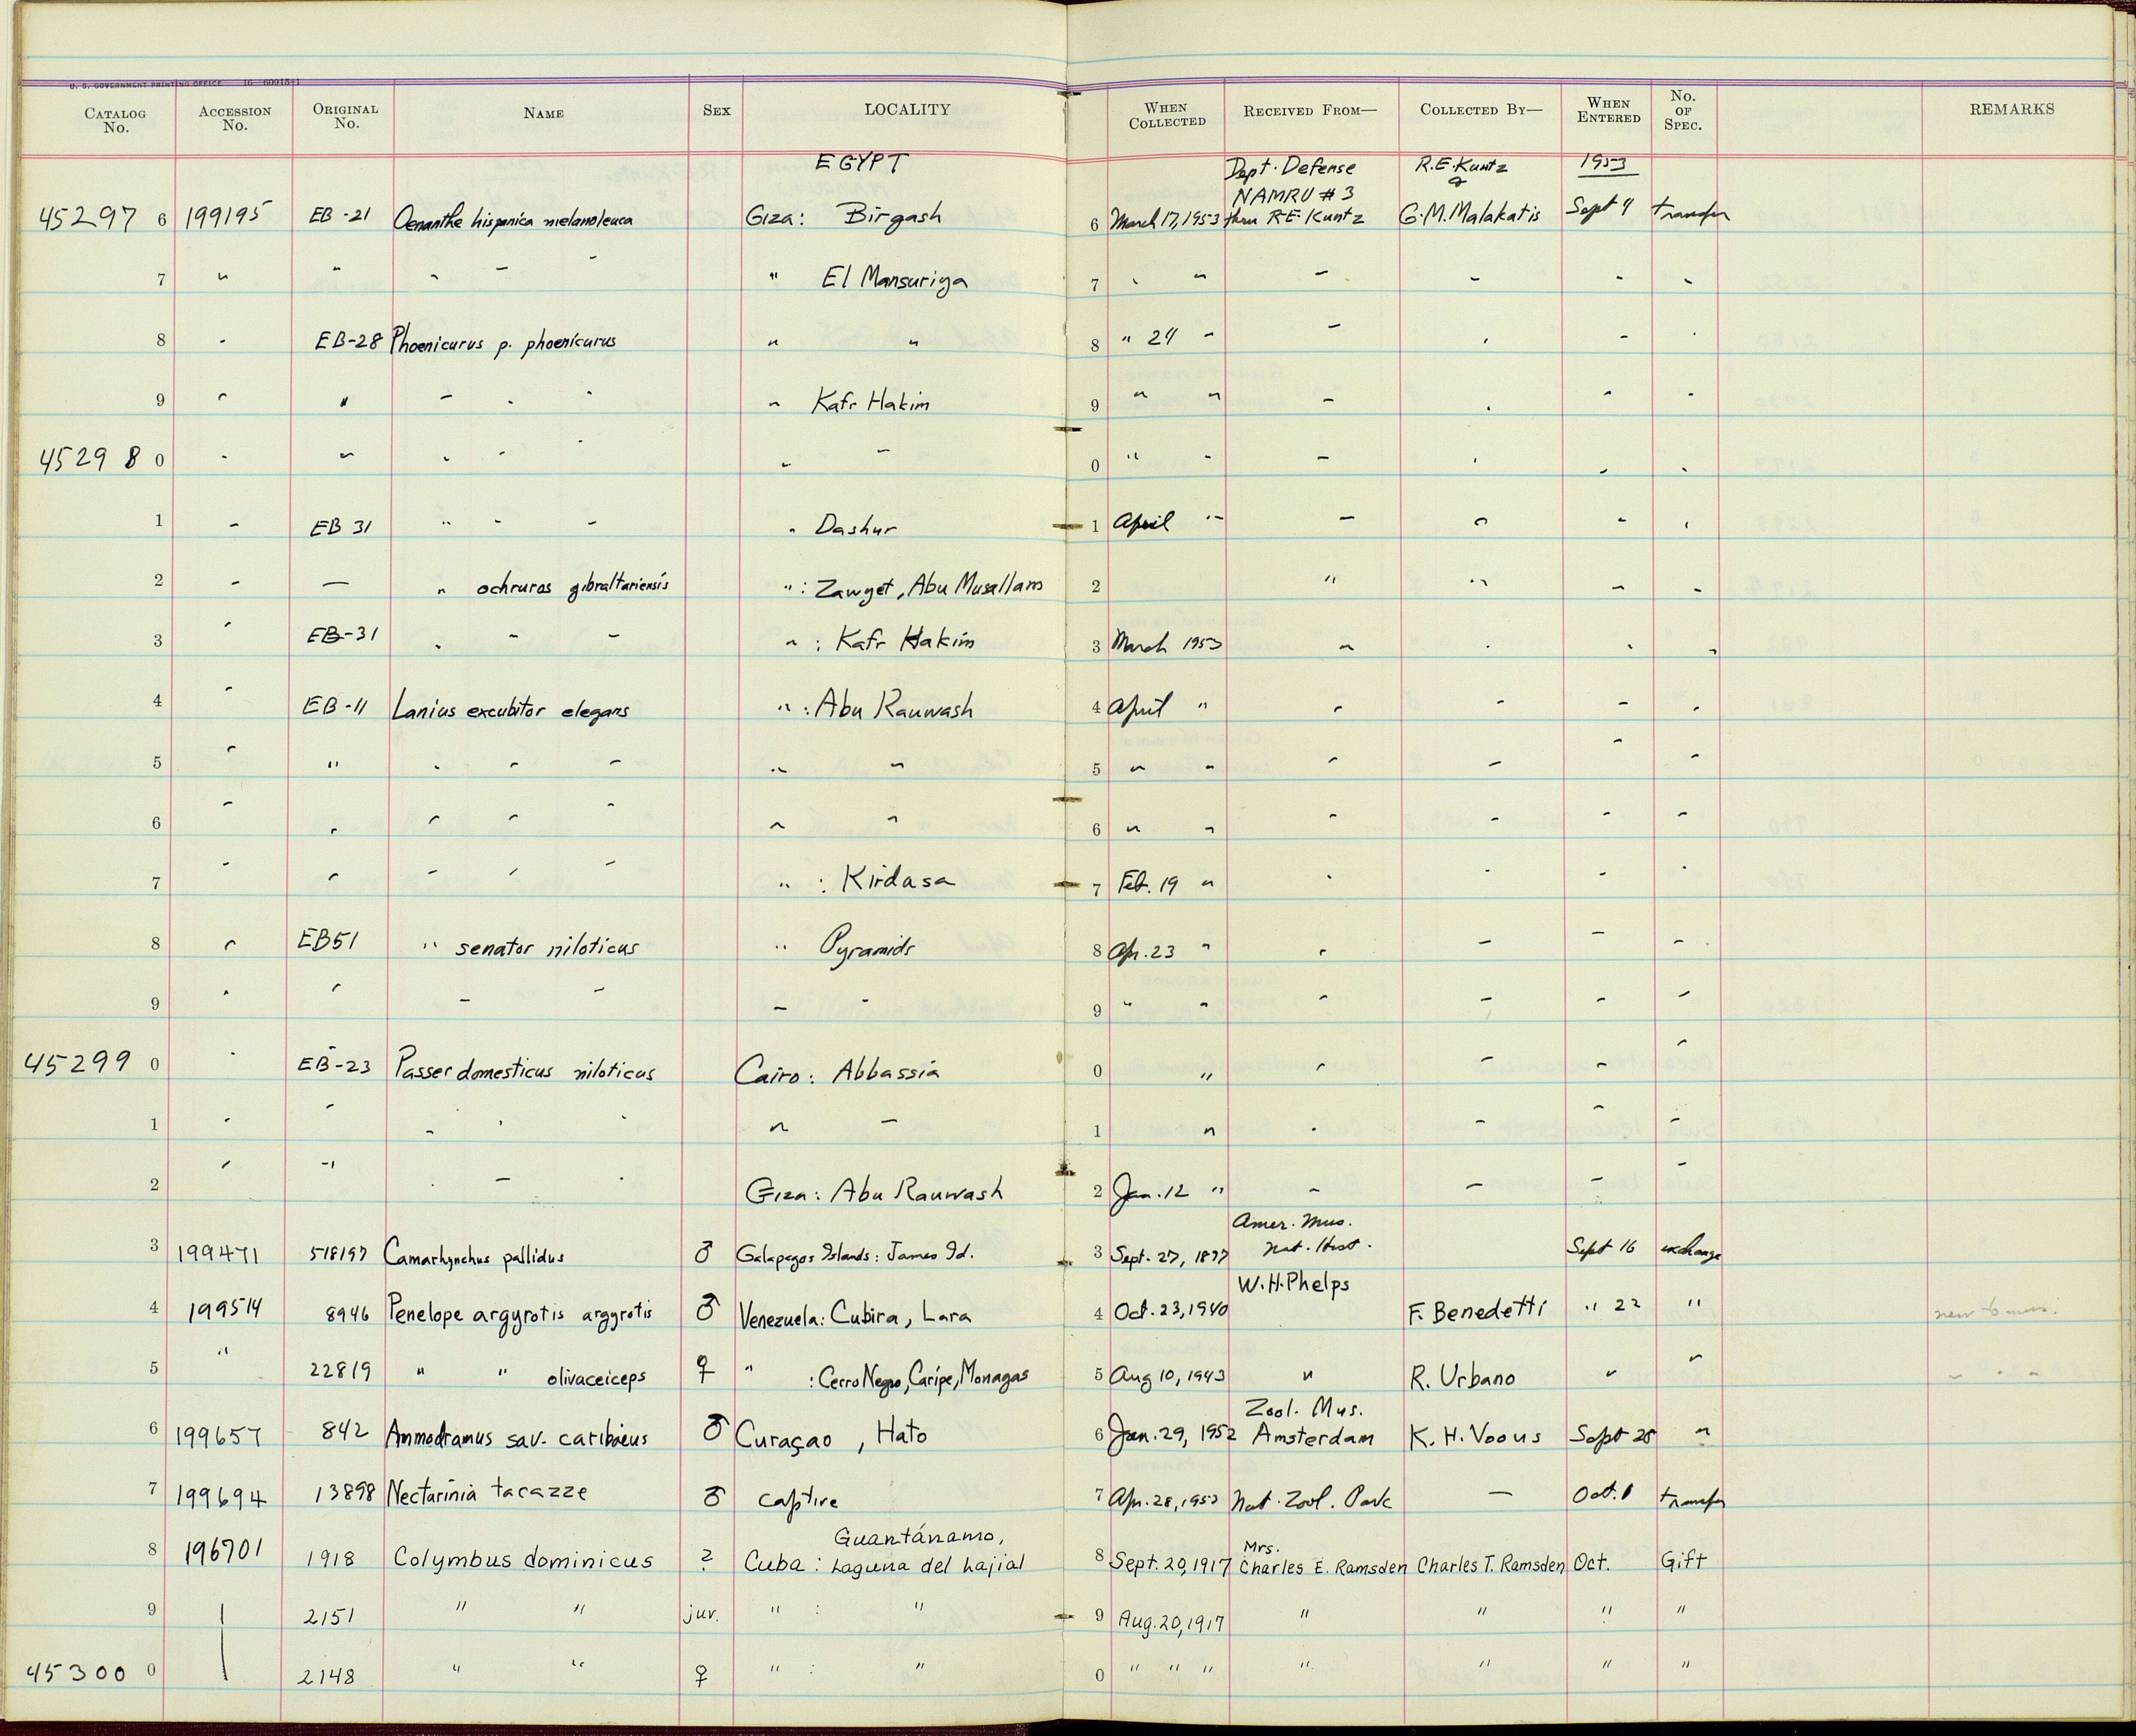 U. S. GOVERNMENT PRINTING OFFICE 16—60915-1
CATALOG No. ACCESSION No. ORIGINAL No. NAME SEX LOCALITY WHEN COLLECTED RECEIVED FROM— COLLECTED BY— WHEN ENTERED No. OF SPEC. REMARKS
EGYPT Dept. Defense R.E. Kuntz 1953
NAMRU #3 &
45297 6 199195 EB-21 Oenanthe hispanica melanoleuca Giza: Birgash 6 March 17, 1953 thru R.E. Kuntz G.M. Malakatis Sept 4 transfer
7 " " " " " " El Mansuriya 7 " " " " " "
8 " EB-28 Phoenicurus p. phoenicurus " " 8 " 24 " " " " "
9 " " " " " " Kafr Hakim 9 " " " " " "
45298 0 " " " " " " " 0 " " " " " "
1 " EB 31 " " " " Dashur 1 April " " " " "
2 " — " ochruros gibraltariensis ": Zawyet, Abu Musallam 2 " " " "
3 " EB-31 " " " ": Kafr Hakim 3 March 1953 " " " "
4 " EB-11 Lanius excubitor elegans ": Abu Rauwash 4 April " " " " "
5 " " " " " " " 5 " " " " " "
6 " " " " " " " 6 " " " " " "
7 " " " " " ": Kirdasa 7 Feb. 19 " " " " "
8 " EB51 " senator niloticus " Pyramids 8 Apr. 23 " " " " "
9 " " " " " " 9 " " " " " "
45299 0 " EB-23 Passer domesticus niloticus Cairo: Abbassia 0 " " " " "
1 " " " " " " " 1 " " " " "
2 " " " " " Giza: Abu Rauwash 2 Jan. 12 " " " " "
Amer. Mus.
3 199471 518197 Camarhynchus pallidus ♂ Galapagos Islands: James Id. 3 Sept. 27, 1897 Nat. Hist. Sept 16 exchange
W.H. Phelps
4 199514 8946 Penelope argyrotis argyrotis ♂ Venezuela: Cubira, Lara 4 Oct. 23, 1940 F. Benedetti " 22 " new to mus.
5 " 22819 " " olivaceiceps ♀ " : Cerro Negro, Caripe, Monagas 5 Aug 10, 1943 " R. Urbano " " " " "
Zool. Mus.
6 199657 842 Ammodramus sav. caribaeus ♂ Curaçao, Hato 6 Jan. 29, 1952 Amsterdam K. H. Voous Sept 28 "
7 199694 13898 Nectarinia tacazze ♂ captive 7 Apr. 28, 1953 Nat. Zool. Park — Oct. 1 transfer
Guantánamo, Mrs.
8 196701 1918 Colymbus dominicus ? Cuba: Laguna del Lajial 8 Sept. 20, 1917 Charles E. Ramsden Charles T. Ramsden Oct. Gift
9 | 2151 " " juv. " : " 9 Aug. 20, 1917 " " " "
45300 0 | 2148 " " ♀ " : " 0 " " " " " " "